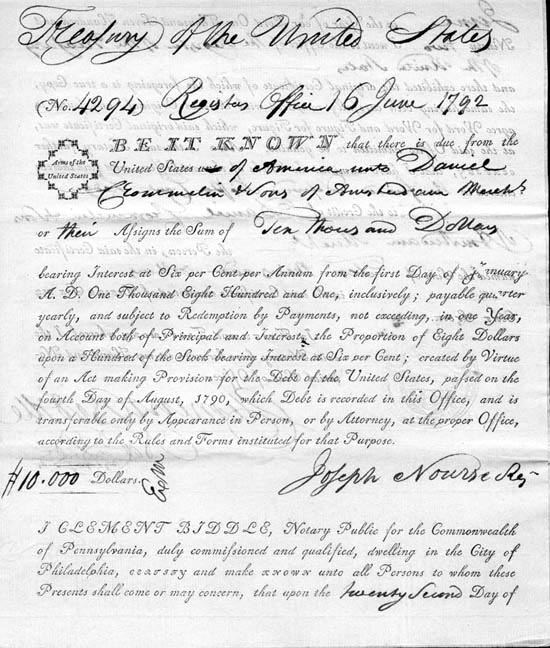 Treasury of the United States
(No. 4294) Register Office 16 June 1792
BE IT KNOWN that there is due from the
Arms of the
United States
United States of America unto Daniel
Crommelin & Sons of Amsterdam Mercht.
or their Assigns the Sum of Ten Thousand Dollars
bearing Interest at Six per Cent per Annum from the first Day of January
A. D. One Thousand Eight Hundred and One, inclusively; payable quarter
yearly, and subject to Redemption by Payments, not exceeding, in one Year,
on Account both of Principal and Interest, the Proportion of Eight Dollars
upon a Hundred of the Stock bearing Interest at Six per Cent; created by Virtue
of an Act making Provision for the Debt of the United States, passed on the
fourth Day of August, 1790, which Debt is recorded in this Office, and is
transferable only by Appearance in Person, or by Attorney, at the proper Office,
according to the Rules and Forms instituted for that Purpose.
$10.000 Dollars.
Joseph Nourse Regr
I CLEMENT BIDDLE, Notary Public for the Commonwealth
of Pennsylvania, duly commissioned and qualified, dwelling in the City of
Philadelphia, CERTIFY and make KNOWN unto all Persons to whom these
Presents shall come or may concern, that upon the twenty Second Day of